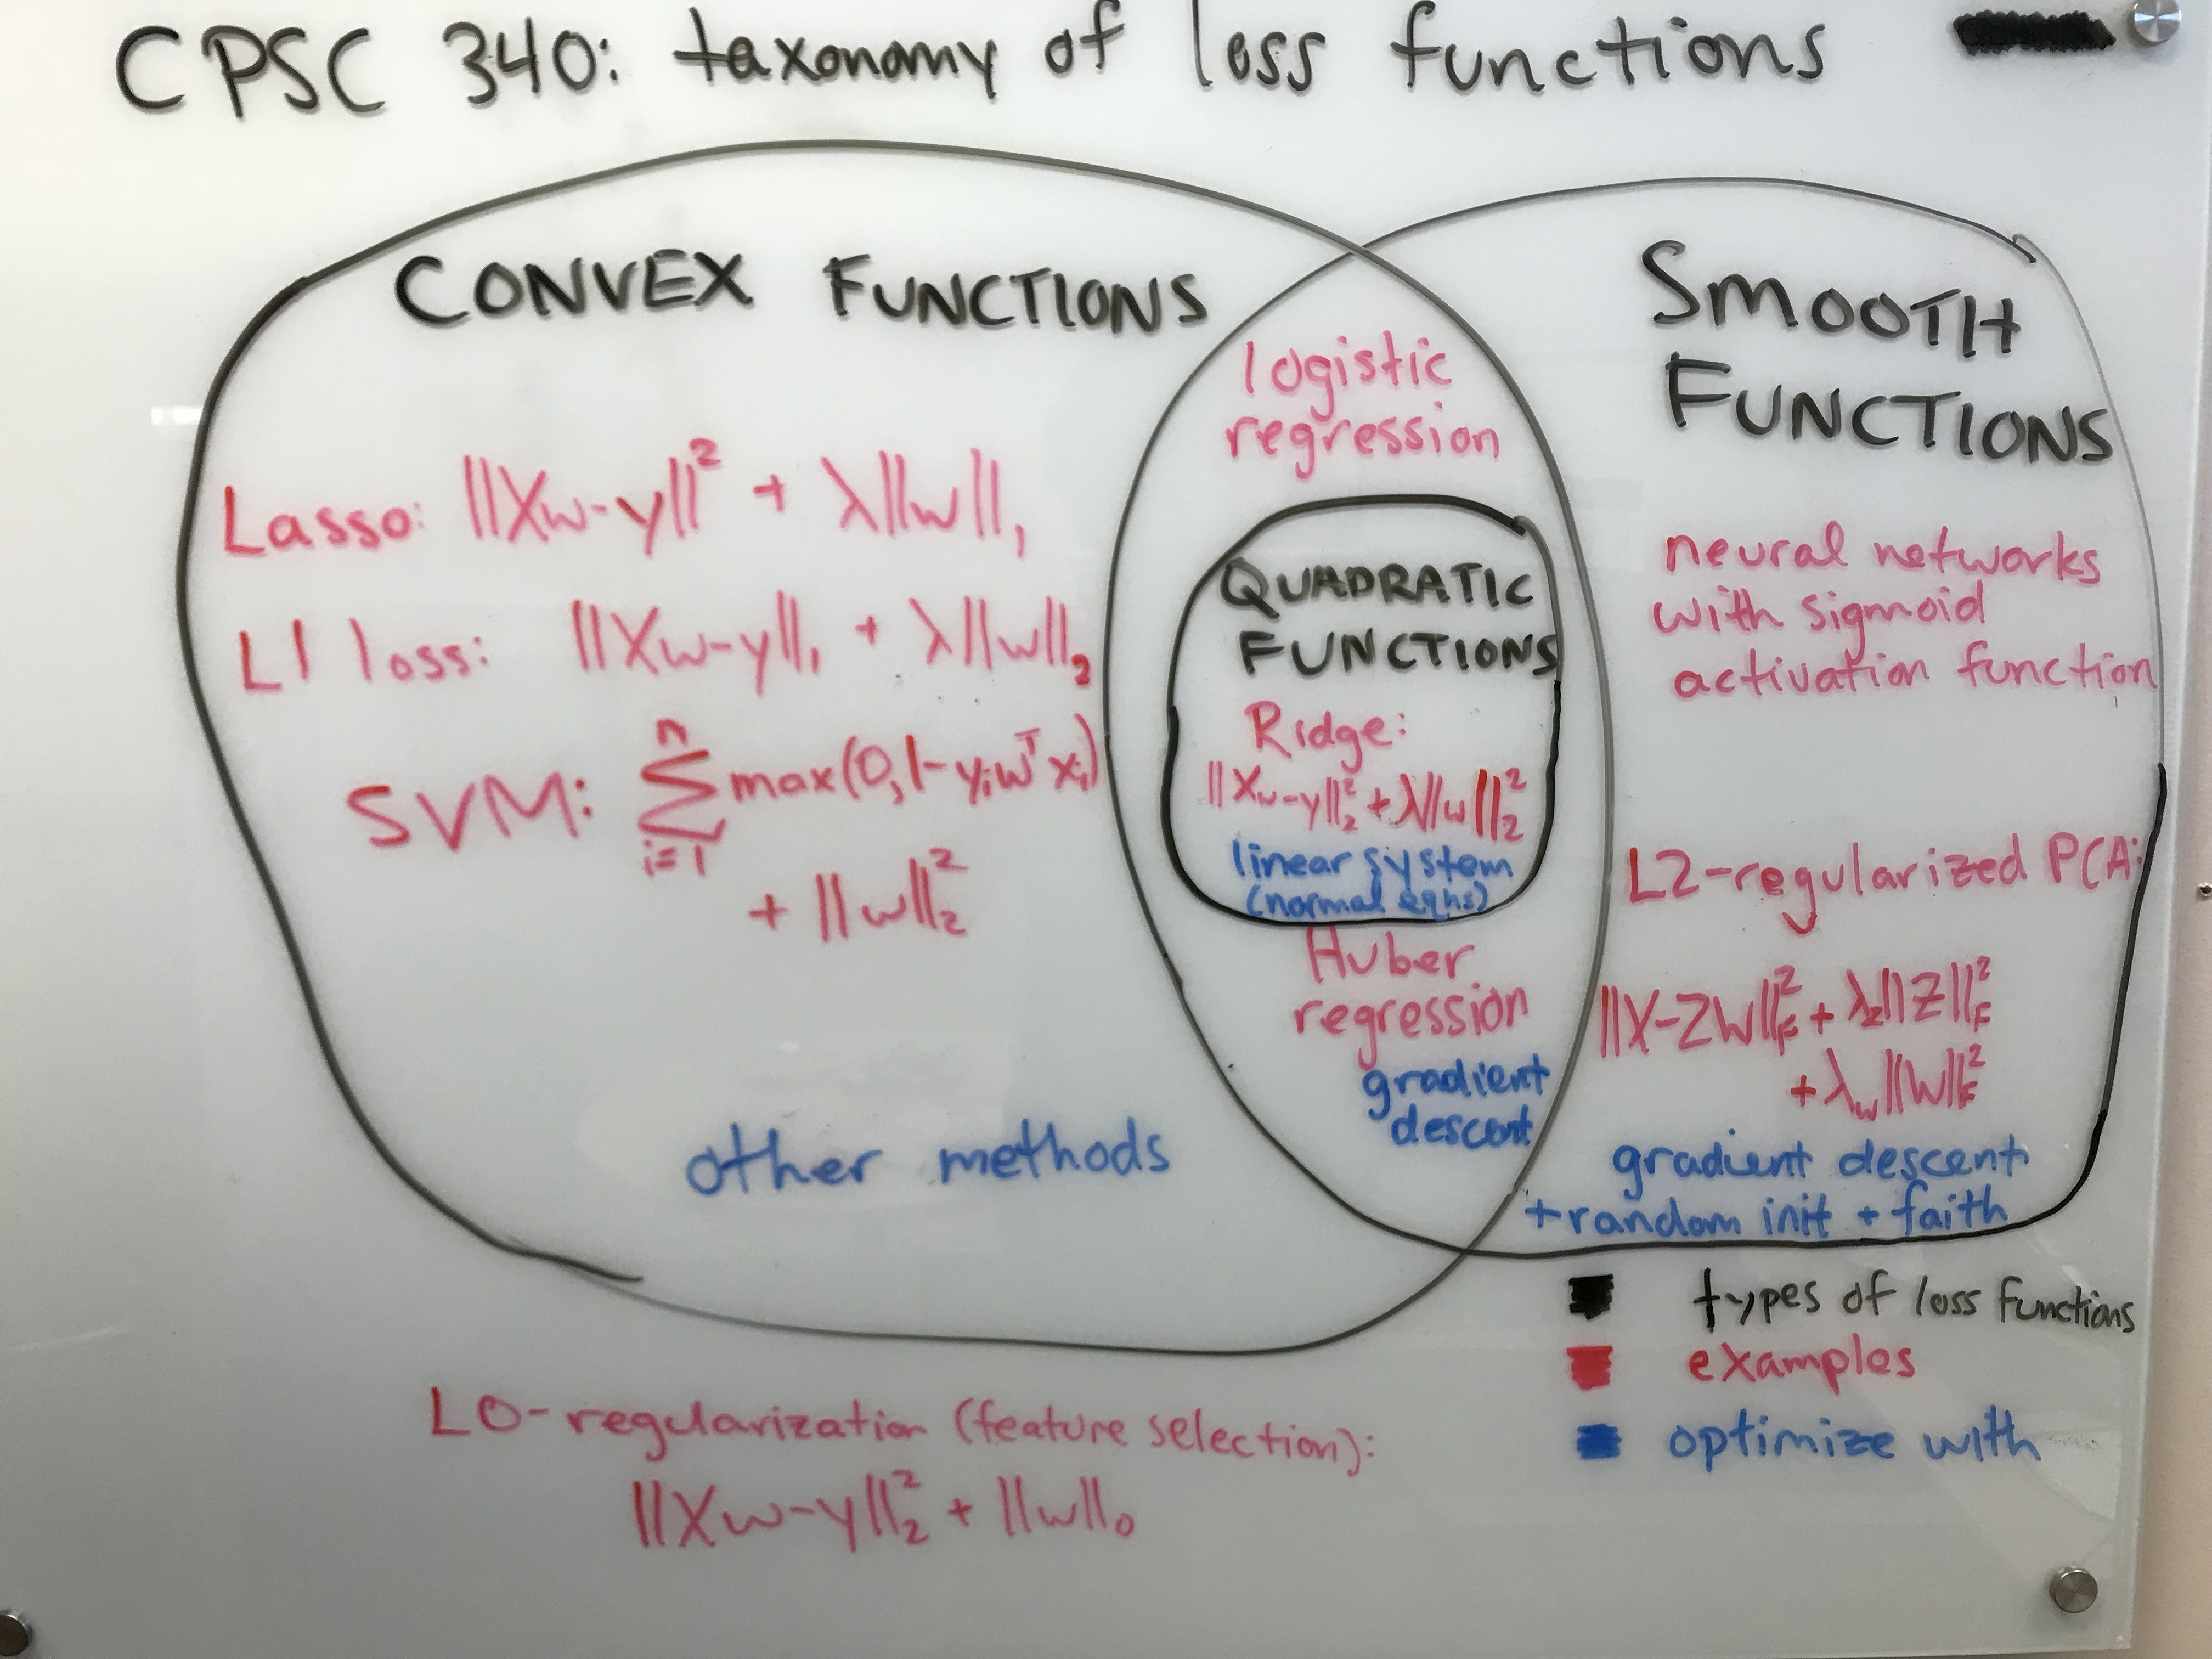 CPSC 340: taxonomy of loss functions
CONVEX FUNCTIONS
Lasso: ||Xw-y||² + λ||w||₁
L1 loss: ||Xw-y||₁ + λ||w||₂
SVM: Σ max(0,1-yᵢwᵀxᵢ)
n
i=1
+ ||w||₂²
other methods
logistic
regression
QUADRATIC
FUNCTIONS
Ridge:
||Xw-y||₂² + λ||w||₂²
linear system
(normal eqns)
Huber
regression
gradient
descent
SMOOTH
FUNCTIONS
neural networks
with sigmoid
activation function
L2-regularized PCA:
||X-ZW||_F² + λ_z||Z||_F²
+ λ_w||W||_F²
gradient descent
+random init + faith
L0-regularization (feature selection):
||Xw-y||₂² + ||w||₀
types of loss functions
examples
optimize with